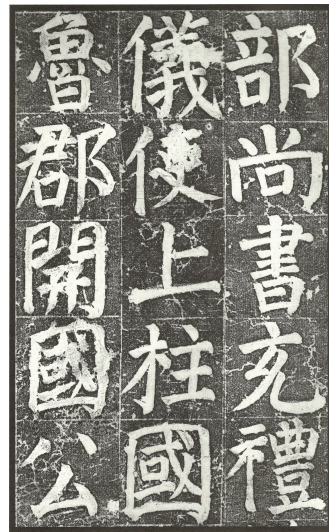 部尚書充禮
儀使上柱國
魯郡開國公